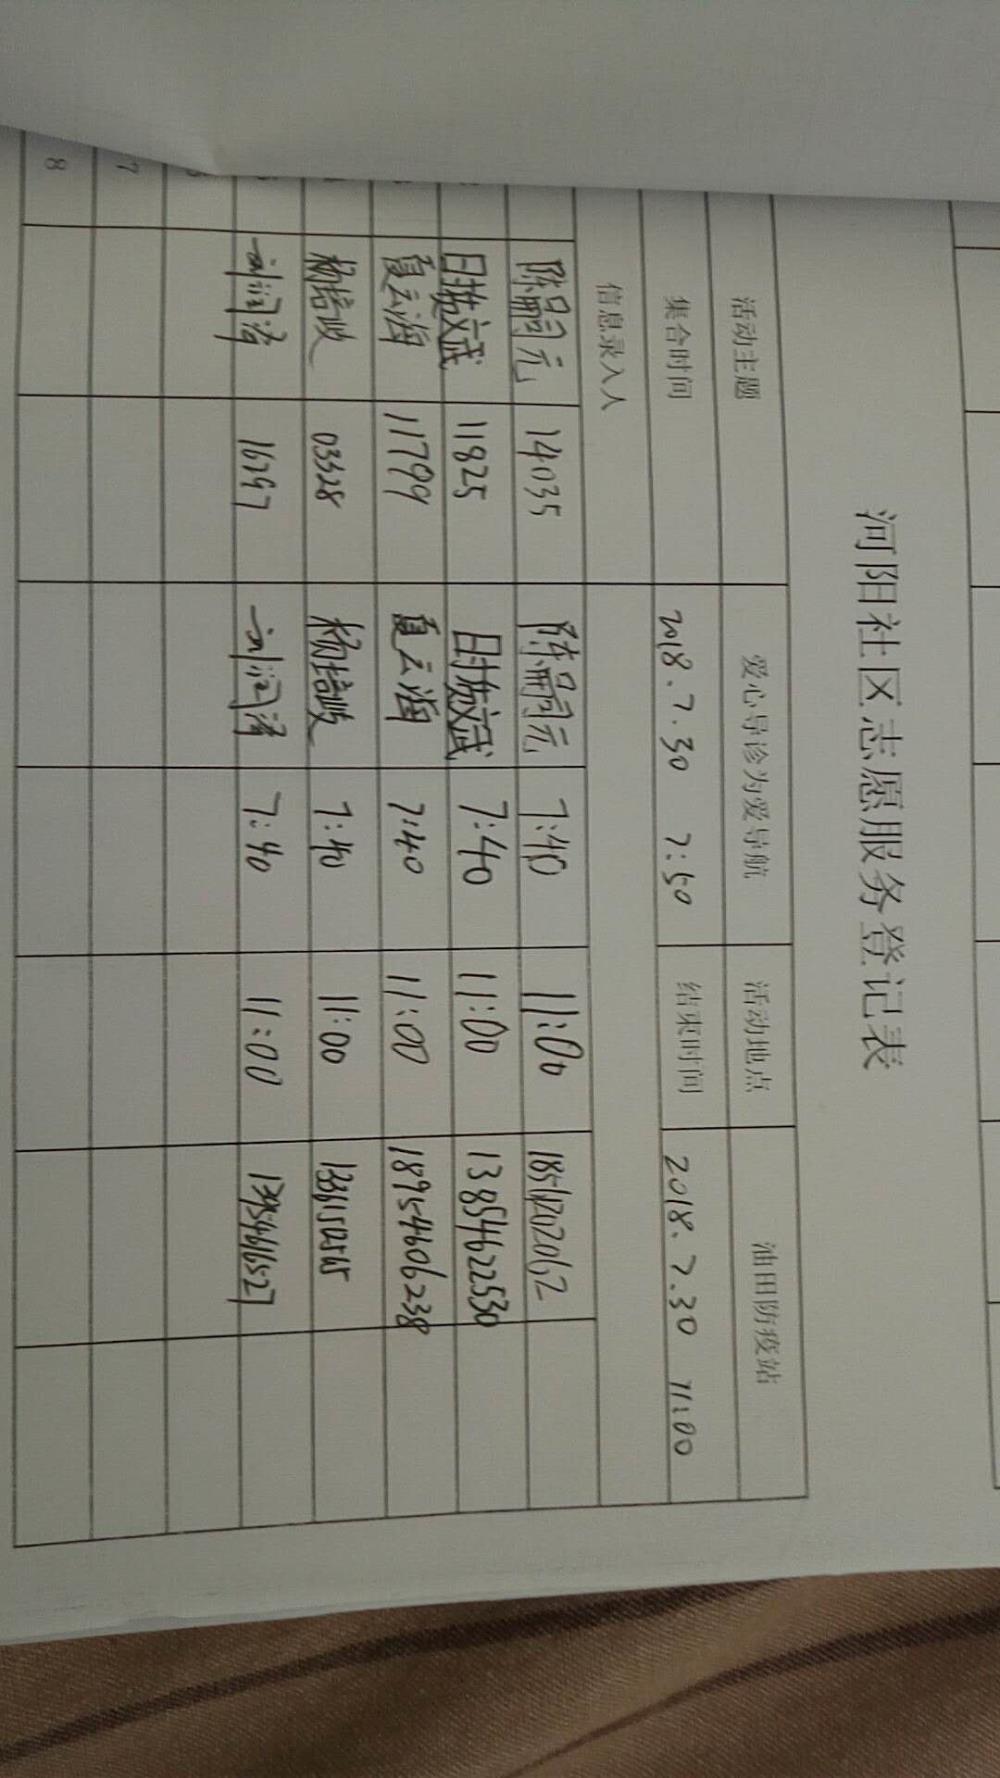 河阳社区志愿服务登记表
活动主题 爱心导诊为爱导航 活动地点 油田防疫站
集合时间 2018.7.30 7:50 结束时间 2018.7.30 11:00
信息录入人
陈嗣元 14035 陈嗣元 7:40 11:00
11825 7:40 11:00 13854622530
夏云海 11799 夏云海 7:40 11:00 18954606238
杨培收 03328 杨培收 7:40 11:00
16297 7:40 11:00
7
8